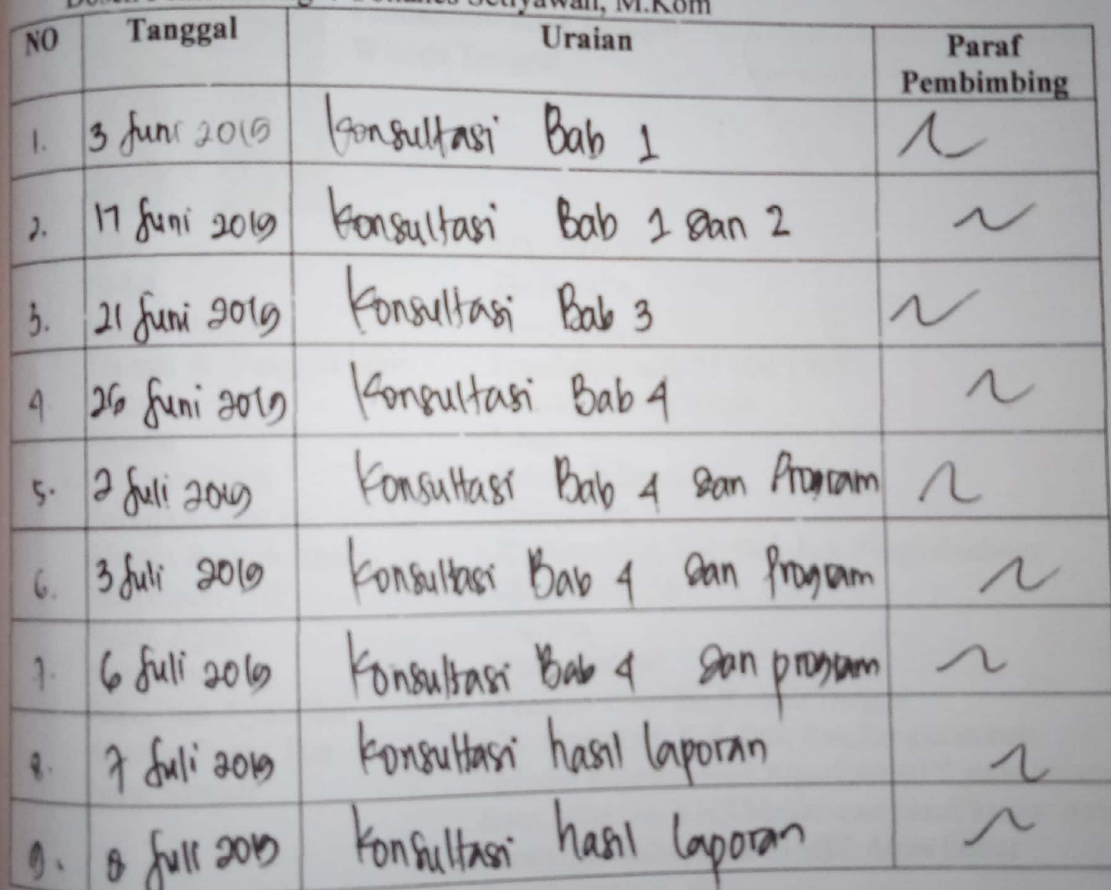 Setiyawan, M.Kom
NO Tanggal Uraian Paraf
Pembimbing
1. 3 Juni 2019 Konsultasi Bab 1
2. 17 Juni 2019 Konsultasi Bab 1 dan 2
3. 21 Juni 2019 Konsultasi Bab 3
4. 26 Juni 2019 Konsultasi Bab 4
5. 2 Juli 2019 Konsultasi Bab 4 dan Program
6. 3 Juli 2019 Konsultasi Bab 4 dan Program
7. 6 Juli 2019 Konsultasi Bab 4 dan program
8. 7 Juli 2019 Konsultasi hasil laporan
9. 8 Juli 2019 Konsultasi hasil laporan